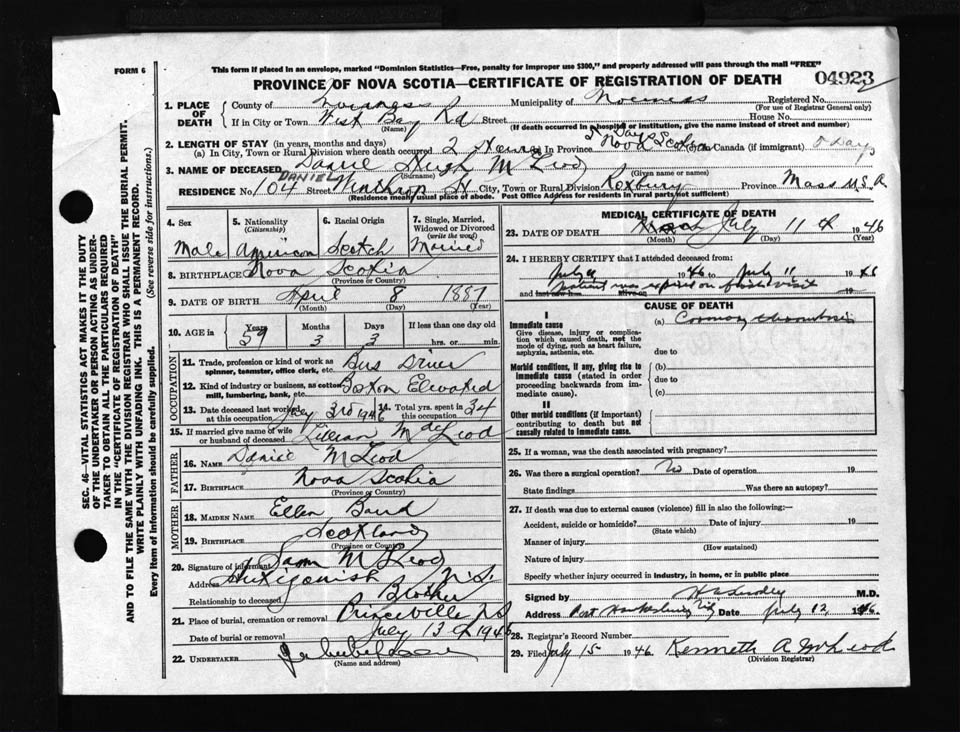 FORM 6
This form if placed in an envelope, marked "Dominion Statistics—Free, penalty for improper use $300," and properly addressed will pass through the mail "FREE"
PROVINCE OF NOVA SCOTIA—CERTIFICATE OF REGISTRATION OF DEATH
04923
1. PLACE OF DEATH
County of Inverness Municipality of Inverness Registered No.
(For use of Registrar General only)
If in City or Town West Bay Rd Street House No.
(Name) (If death occurred in a hospital or institution, give the name instead of street and number)
2. LENGTH OF STAY (in years, months and days)
(a) In City, Town or Rural Division where death occurred 2 Hours In Province 5 Days Nova Scotia Canada (if immigrant) 5 Days
3. NAME OF DECEASED Daniel Hugh McLeod
DANIEL (Surname) (Given name or names)
RESIDENCE No. 104 Street Winthrop St City, Town or Rural Division Roxbury Province Mass U.S.A
(Residence means usual place of abode. Post Office Address not sufficient)
4. Sex
Male
5. Nationality
(Citizenship)
American
6. Racial Origin
Scotch
7. Single, Married, Widowed or Divorced
(write the word)
Married
8. BIRTHPLACE Nova Scotia
(Province or Country)
9. DATE OF BIRTH April 8 1887
(Month) (Day) (Year)
10. AGE in Years Months Days If less than one day old
59 3 3 hrs. or min.
OCCUPATION
11. Trade, profession or kind of work as spinner, teamster, office clerk, etc. Bus Driver
12. Kind of industry or business, as cotton mill, lumbering, bank, etc. Boston Elevated
13. Date deceased last worked at this occupation July 3rd 1946
14. Total yrs. spent in this occupation 34
15. If married give name of wife or husband of deceased Lillian McLeod
FATHER
16. NAME Daniel McLeod
17. BIRTHPLACE Nova Scotia
(Province or Country)
MOTHER
18. MAIDEN NAME Ellen
19. BIRTHPLACE Scotland
(Province or Country)
20. Signature of informant McLeod
Address Antigonish N.S.
Relationship to deceased Brother
21. Place of burial, cremation or removal Princeville NS
Date of burial or removal July 13th 1946
22. UNDERTAKER
(Name and address)
MEDICAL CERTIFICATE OF DEATH
23. DATE OF DEATH July 11th 1946
(Month) (Day) (Year)
24. I HEREBY CERTIFY that I attended deceased from:
July 11 1946 to July 11 1946
and last saw h alive on patient was expired on first visit 19
CAUSE OF DEATH
I
Immediate cause
Give disease, injury or complication which caused death, not the mode of dying, such as heart failure, asphyxia, asthenia, etc.
(a) Coronary thrombosis
due to
Morbid conditions, if any, giving rise to immediate cause (stated in order proceeding backwards from immediate cause).
(b)
due to
(c)
II
Other morbid conditions (if important) contributing to death but not causally related to immediate cause.
25. If a woman, was the death associated with pregnancy?
26. Was there a surgical operation? No Date of operation 19
State findings Was there an autopsy?
27. If death was due to external causes (violence) fill in also the following:—
Accident, suicide or homicide? Date of injury 19
(State which)
Manner of injury
(How sustained)
Nature of injury
Specify whether injury occurred in industry, in home, or in public place
Signed by M.D.
Address Port Hawkesbury Date July 12 1946.
28. Registrar's Record Number
29. Filed July 15 1946 Kenneth A McLeod
(Division Registrar)
SEC. 46—VITAL STATISTICS ACT MAKES IT THE DUTY
OF THE UNDERTAKER OR PERSON ACTING AS UNDERTAKER
TO OBTAIN ALL THE PARTICULARS REQUIRED
IN THE "CERTIFICATE OF REGISTRATION OF DEATH"
AND TO FILE THE SAME WITH THE DIVISION REGISTRAR WHO SHALL ISSUE THE BURIAL PERMIT.
WRITE PLAINLY WITH UNFADING INK. THIS IS A PERMANENT RECORD.
Every item of information should be carefully supplied. (See reverse side for instructions.)